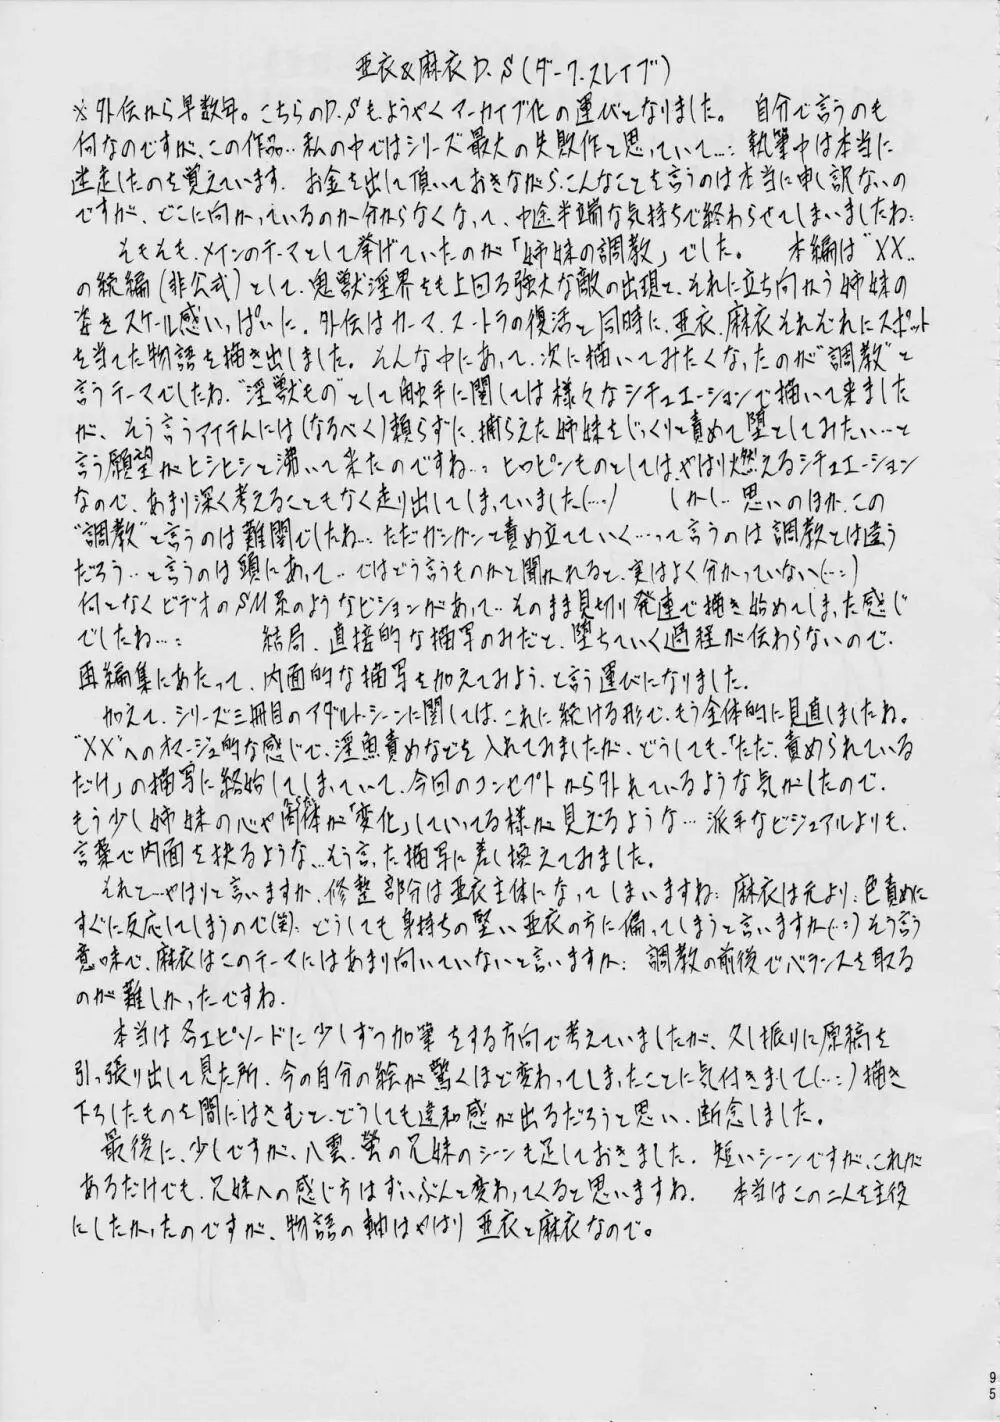 亜衣&麻衣D.S(ダーク.スレイブ)
※外伝から早数年。こちらのD.Sも、ようやくアーカイブ化の運びとなりました。 自分で言うのも
何なのですが、この作品‥私の中ではシリーズ最大の失敗作と思っていて…:執筆中は本当に
迷走したのを覚えています. お金を出して頂いておきながら、こんなことを言うのは本当に申し訳ないの
ですが、どこに向かっているのか分からなくなって、中途半端な気持ちで終わらせてしまいましたね:
そもそも、メインのテーマとして挙げていたのが「姉妹の調教」でした。 本編は“XX‥
の続編(非公式)として、鬼獣淫界をも上回る強大な敵の出現と、それに立ち向かう姉妹の
姿をスケール感いっぱいに、外伝はカーマ.スートラの復活と同時に、亜衣、麻衣それぞれにスポット
を当てた物語を描き出しました。そんな中にあって、次に描いてみたくなったのが“調教”と
言うテーマでしたね.“淫獣もの”として触手に関しては様々なシチュエーションで描いて来ました
が、そう言うアイテムには(なるべく)頼らずに、捕らえた姉妹をじっくりと責めて堕としてみたい…と
言う願望がヒシヒシと沸いて来たのですね‥:ヒロピンものとしては、やはり燃えるシチュエーション
なので、あまり深く考えることもなく走り出してしまっていました(…) しかし‥思いのほか、この
“調教”と言うのは難関でしたね…:ただガンガンと責め立てていく…って言うのは調教とは違う
だろう‥と言うのは頭にあって‥ではどう言うものかと聞かれると、実はよく分かっていない(…:)
何となくビデオのSM系のようなビジョンがあって‥そのまま見切り発進で描き始めてしまった感じ
でしたね…: 結局、直接的な描写のみだと、堕ちていく過程が伝わらないので、
再編集にあたって、内面的な描写を加えてみよう、と言う運びになりました.
加えて、シリーズ三冊目のアダルト・シーンに関しては、これに続ける形で、もう全体的に見直しましたね。
“XX”へのオマージュ的な感じで、淫魚責めなどを入れてみましたが、どうしても、「ただ、責められている
だけ」の描写に終始してしまっていて、今回のコンセプトから外れているような気がしたので、
もう少し姉妹の心や肉体が「変化」していってる様が見えるような…派手なビジュアルよりも、
言葉で内面を抉るような…そう言った描写に差し換えてみました.
それと…やはりと言いますか、修整部分は亜衣主体になってしまいますね:麻衣は元より、色責めに
すぐに反応してしまうので(笑):どうしても身持ちの堅い亜衣の方に偏ってしまうと言いますか(…:)そう言う
意味で、麻衣はこのテーマにはあまり向いていないと言いますか:調教の前後でバランスを取る
のが難しかったですね.
本当は各エピソードに少しずつ加筆をする方向で考えていましたが、久し振りに原稿を
引っ張り出して見た所、今の自分の絵が驚くほど変わってしまったことに気付きまして(…:)描き
下ろしたものを間にはさむと、どうしても違和感が出るだろうと思い、断念しました.
最後に、少しですが、八雲、螢の兄妹のシーンも足しておきました. 短いシーンですが、これが
あるだけでも、兄妹への感じ方はずいぶんと変わってくると思いますね. 本当はこの二人を主役
にしたかったのですが、物語の軸はやはり亜衣と麻衣なので。
95